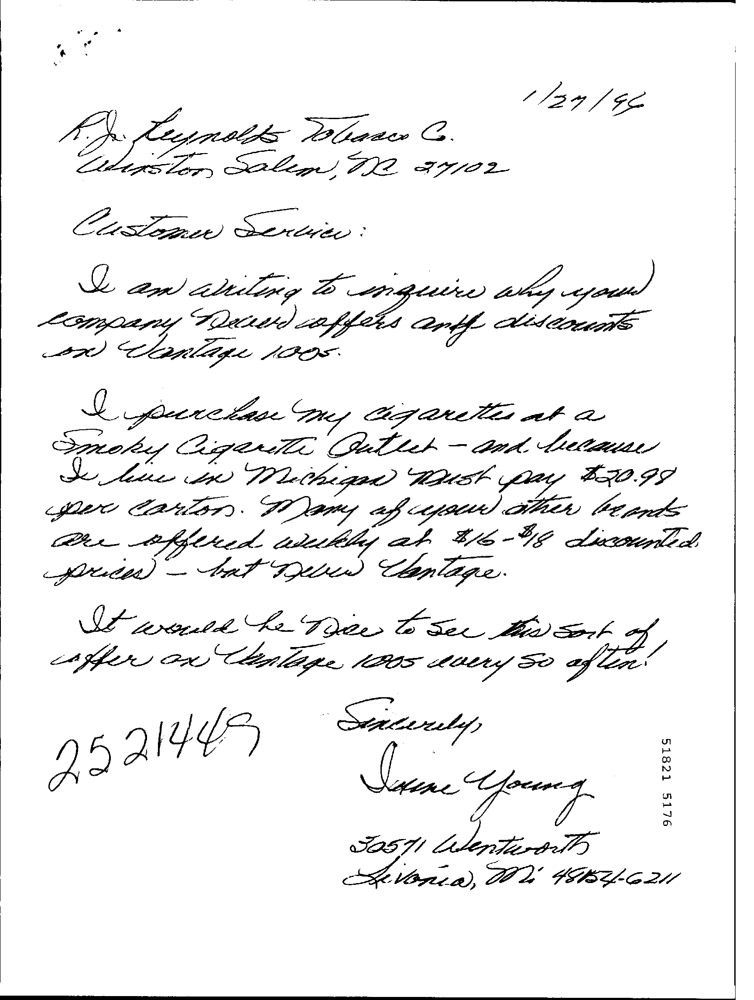 1/27/96
R.J. Reynolds Tobacco Co.
Winston Salem, NC 27102
Customer Service:
I am writing to inquire why your
company never offers any discounts
on Vantage 100s.
I purchase my cigarettes at a
Smoky Cigarette Outlet - and because
I live in Michigan must pay $20.98
per carton. Many of your other brands
are offered weekly at $16-$18 discounted
prices - but never Vantage.
It would be nice to see this sort of
offer on Vantage 100s every so often!
Sincerely,
Young
2521449
30571 Wentworth
Livonia, Mi 48154-6211
51821 5176